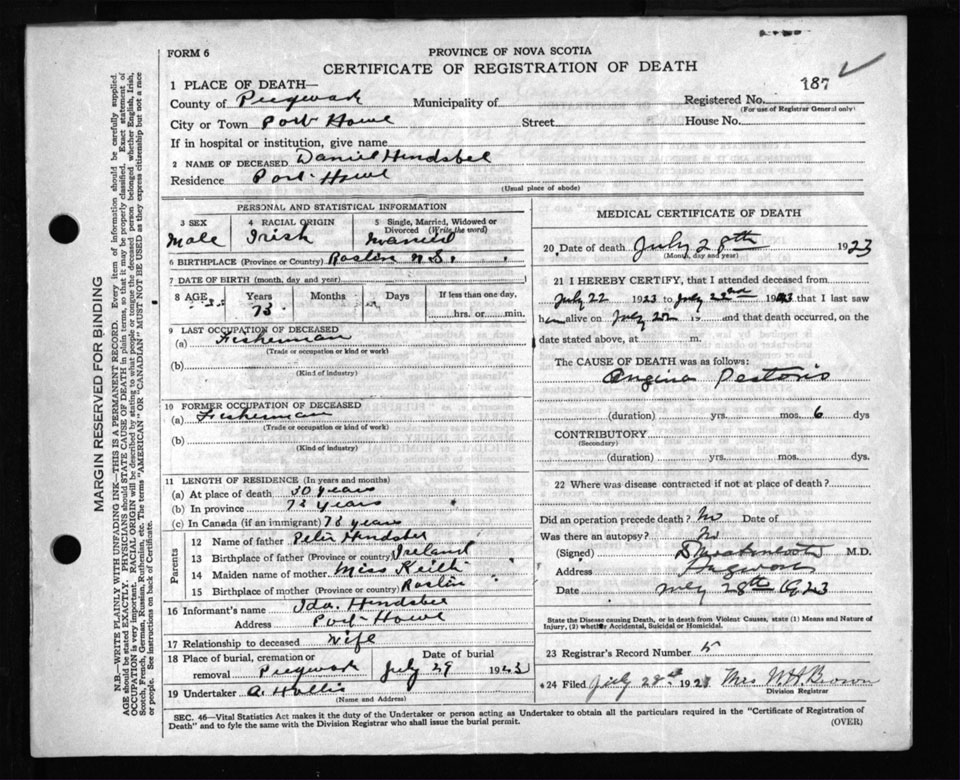 FORM 6
PROVINCE OF NOVA SCOTIA
CERTIFICATE OF REGISTRATION OF DEATH
187
1 PLACE OF DEATH—
County of Pugwash Municipality of Registered No.
(For use of Registrar General only)
City or Town Port Howe Street House No.
If in hospital or institution, give name
2 NAME OF DECEASED Daniel Hindsbel
Residence Port Howe
(Usual place of abode)
PERSONAL AND STATISTICAL INFORMATION
3 SEX 4 RACIAL ORIGIN 5 Single, Married, Widowed or Divorced (Write the word)
Male Irish Married
6 BIRTHPLACE (Province or Country) Roslin N.S.
7 DATE OF BIRTH (month, day and year)
8 AGE Years Months Days If less than one day,
73 hrs. or min.
9 LAST OCCUPATION OF DECEASED
(a) Fisherman
(Trade or occupation or kind or work)
(b)
(Kind of industry)
10 FORMER OCCUPATION OF DECEASED
(a) Fisherman
(Trade or occupation or kind or work)
(b)
(Kind of industry)
11 LENGTH OF RESIDENCE (In years and months)
(a) At place of death 50 years
(b) In province 73 years
(c) In Canada (if an immigrant) 73 years
Parents
12 Name of father Peter Hindsbel
13 Birthplace of father (Province or country) Ireland
14 Maiden name of mother Miss Keith
15 Birthplace of mother (Province or country) Roslin
16 Informant's name Ida Hindsbel
Address Port Howe
17 Relationship to deceased Wife
18 Place of burial, cremation or removal Pugwash Date of burial July 29 1923
19 Undertaker A. Hollis
(Name and Address)
MEDICAL CERTIFICATE OF DEATH
20 Date of death July 28th 1923
(Month, day and year)
21 I HEREBY CERTIFY, that I attended deceased from
July 22 1923 to July 22nd 1923 that I last saw
him alive on July 22 19 and that death occurred, on the
date stated above, at m.
The CAUSE OF DEATH was as follows:
Angina Pectoris
(duration) yrs. mos. 6 dys
CONTRIBUTORY
(Secondary)
(duration) yrs. mos. dys.
22 Where was disease contracted if not at place of death?
Did an operation precede death? No Date of
Was there an autopsy? No
(Signed) M.D.
Address Pugwash
Date July 28th 1923
State the Disease causing Death, or in death from Violent Causes, state (1) Means and Nature of Injury, (2) whether Accidental, Suicidal or Homicidal.
23 Registrar's Record Number 5
24 Filed July 28th 1923 Mrs W. H. Brown
Division Registrar
SEC. 46—Vital Statistics Act makes it the duty of the Undertaker or person acting as Undertaker to obtain all the particulars required in the "Certificate of Registration of
Death" and to fyle the same with the Division Registrar who shall issue the burial permit. (OVER)
MARGIN RESERVED FOR BINDING
N.B—WRITE PLAINLY WITH UNFADING INK—THIS IS A PERMANENT RECORD. Every item of information should be carefully supplied.
AGE should be stated EXACTLY. PHYSICIANS should STATE CAUSE OF DEATH in plain terms, so that it may be properly classified. Exact statement of
OCCUPATION is very important. RACIAL ORIGIN will be described by stating to what people or tongue the deceased person belonged whether English, Irish,
Scotch, French, German, Russian, Ruthenian, etc. The terms "AMERICAN" OR "CANADIAN" MUST NOT BE USED as they express citizenship but not a race
or people. See instructions on back of Certificate.